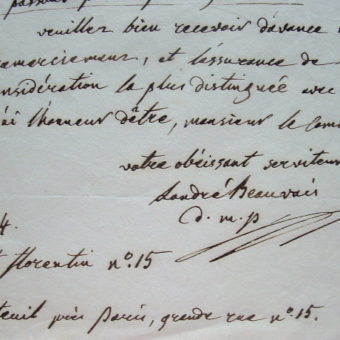 veuillez bien recevoir d'avance
emerciement, et l'assurance de
onsidération la plus distinguée avec
ai l'honneur d'être, monsieur le Com
votre obéissant serviteur
Landré Beauvais
d. m. p
4.
florentin n.º 15
teuil près Paris, grande rue n.º 15.